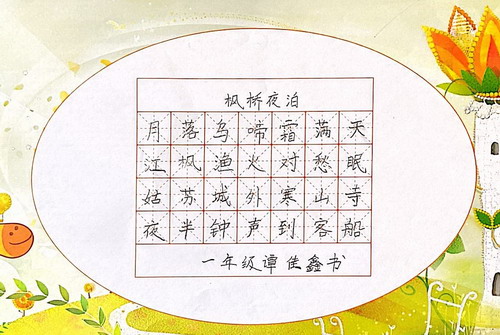 枫桥夜泊
月落乌啼霜满天
江枫渔火对愁眠
姑苏城外寒山寺
夜半钟声到客船
一年级谭佳鑫书